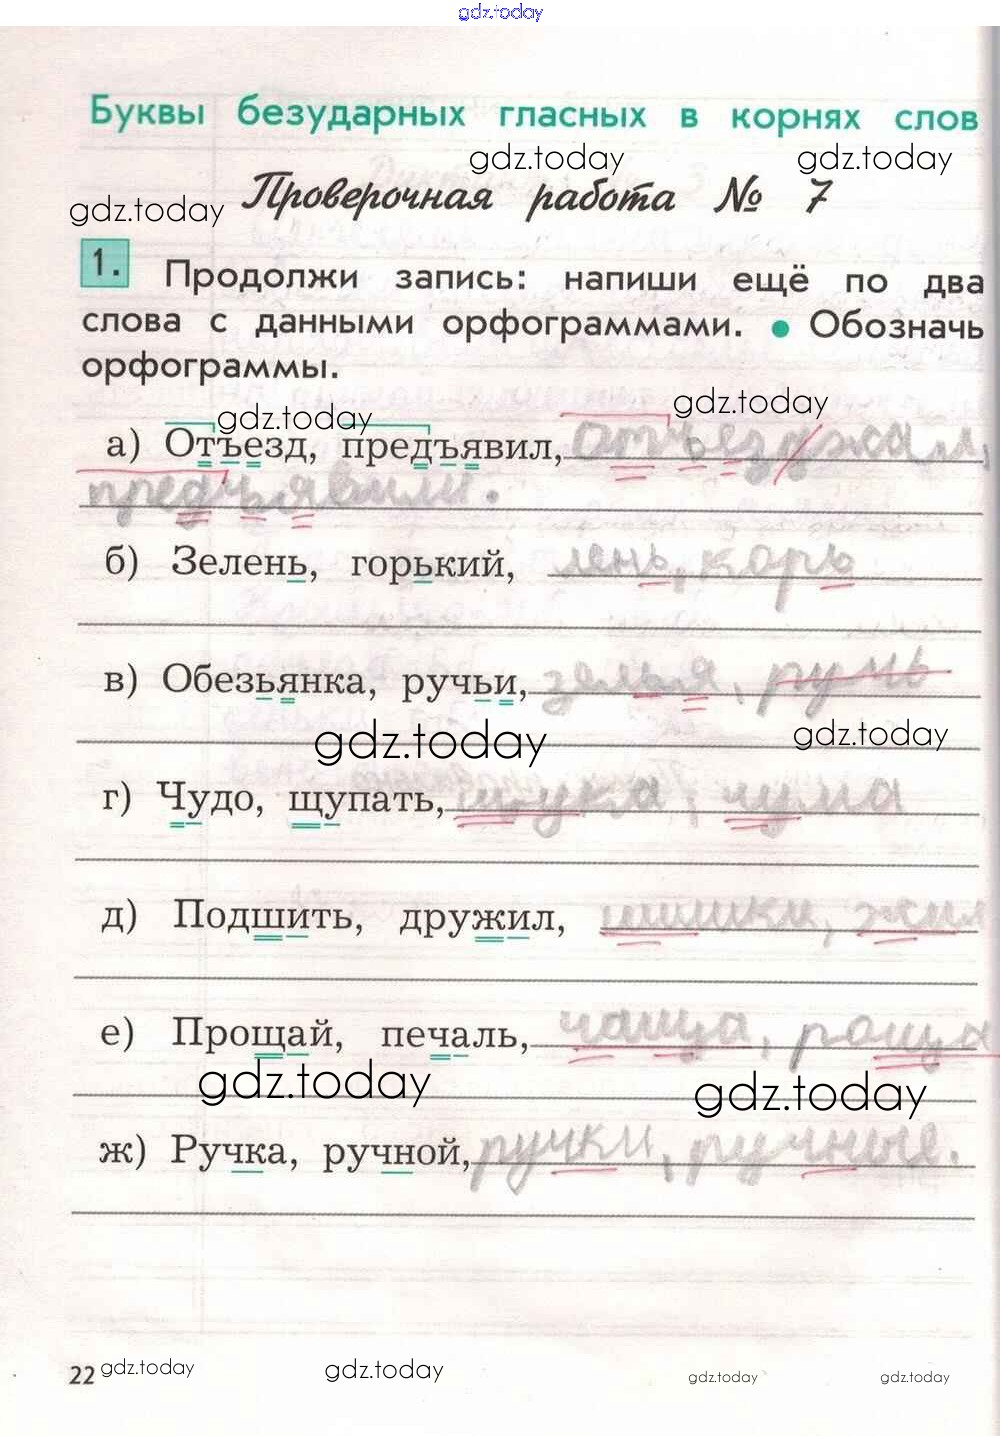 gdz.today
Буквы безударных гласных в корнях слов
gdz.today gdz.today
gdz.today Проверочная работа № 7
1. Продолжи запись: напиши ещё по два
слова с данными орфограммами. ● Обозначь
орфограммы.
gdz.today gdz.today
а) Отъезд, предъявил, отъезджал,
предъявили.
б) Зелень, горький, лень, корь
в) Обезьянка, ручьи, земья, ручь
gdz.today gdz.today
г) Чудо, щупать, щука, чума
д) Подшить, дружил, шишки, жил
е) Прощай, печаль, чаща, роща
gdz.today gdz.today
ж) Ручка, ручной, ручки, ручные.
22 gdz.today gdz.today gdz.today gdz.today